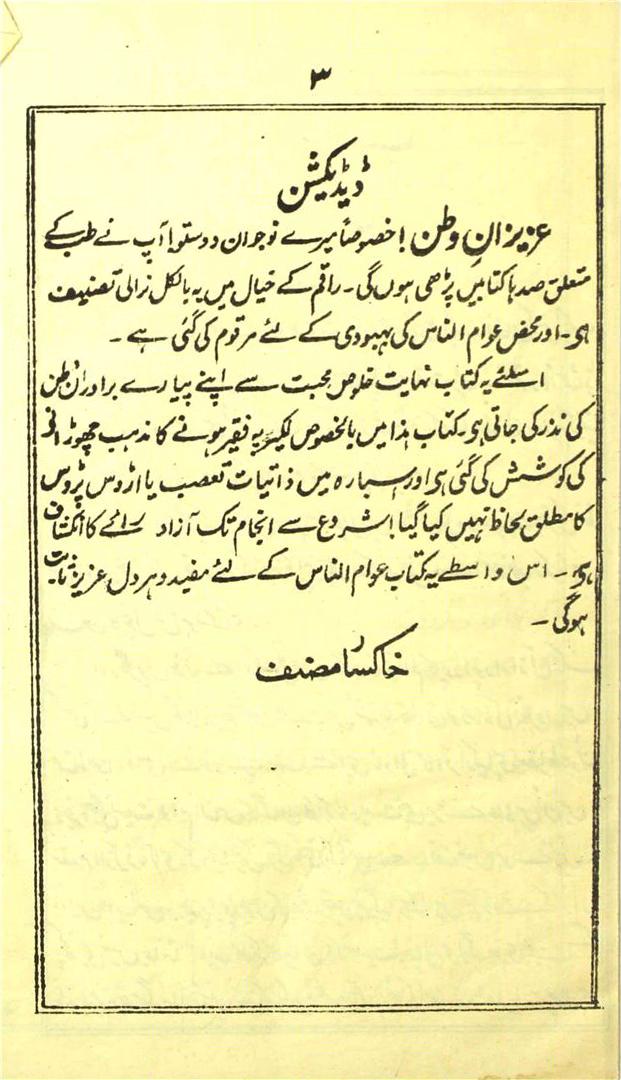 ۳
ڈیڈیکیشن
عزیزانِ وطن! خصوصاً میرے نوجوان دوستو! آپ نے طب کے
متعلق صدہا کتابیں پڑھی ہوں گی۔ راقم کے خیال میں یہ بالکل نرالی تصنیف
ہی۔ اور محض عوام الناس کی بہبودی کے لئے مرقوم کی گئی ہے۔
اسلئے یہ کتاب نہایت خلوص محبت سے اپنے پیارے برادرانِ وطن
کی نذر کی جاتی ہی۔ کتاب ہذا میں بالخصوص لکیر پہ فقیر ہونے کا مذہب چھوڑانے
کی کوشش کی گئی ہی اور اسبارہ میں ذاتیات تعصب یا اڑوس پڑوس
کا مطلق لحاظ نہیں کیا گیا! شروع سے انجام تک آزاد رائے کا انکشاف
ہی۔ اس واسطے یہ کتاب عوام الناس کے لئے مفید و ہر دل عزیز ثابت
ہوگی۔
خاکسار مصنف